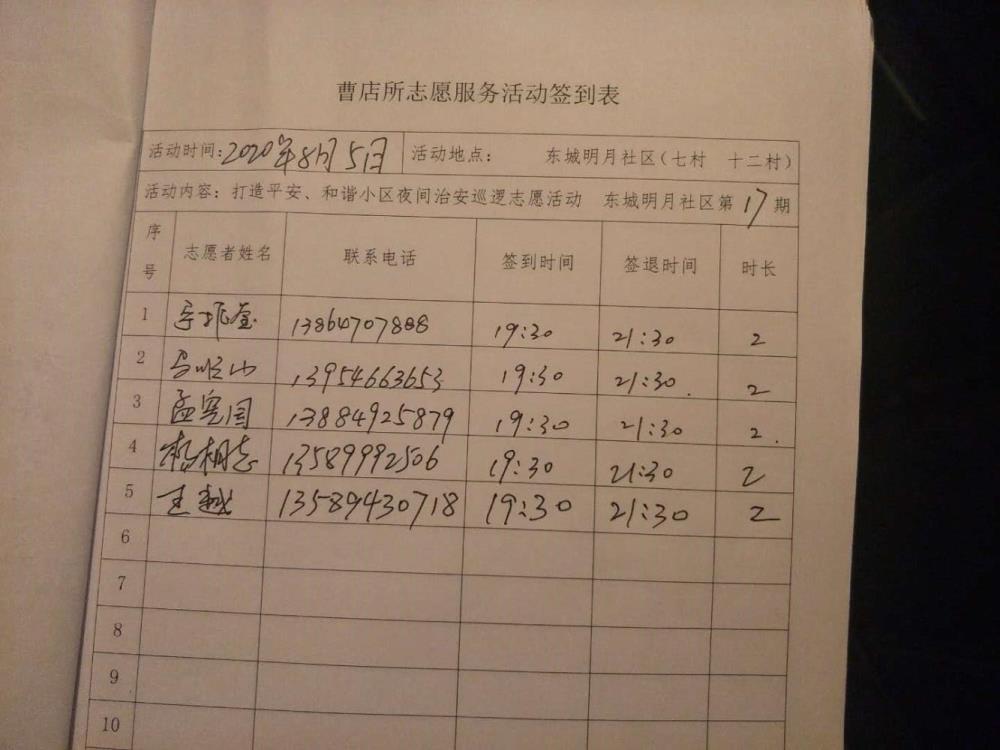 曹店所志愿服务活动签到表
活动时间：2020年8月5日 活动地点： 东城明月社区（七村 十二村）
活动内容：打造平安、和谐小区夜间治安巡逻志愿活动 东城明月社区第17期
序号 志愿者姓名 联系电话 签到时间 签退时间 时长
1 13864707888 19:30 21:30 2
2 马顺山 13954663653 19:30 21:30 2
3 孟宪国 13884925879 19:30 21:30 2
4 杨相志 13589992506 19:30 21:30 2
5 王越 13589430718 19:30 21:30 2
6
7
8
9
10